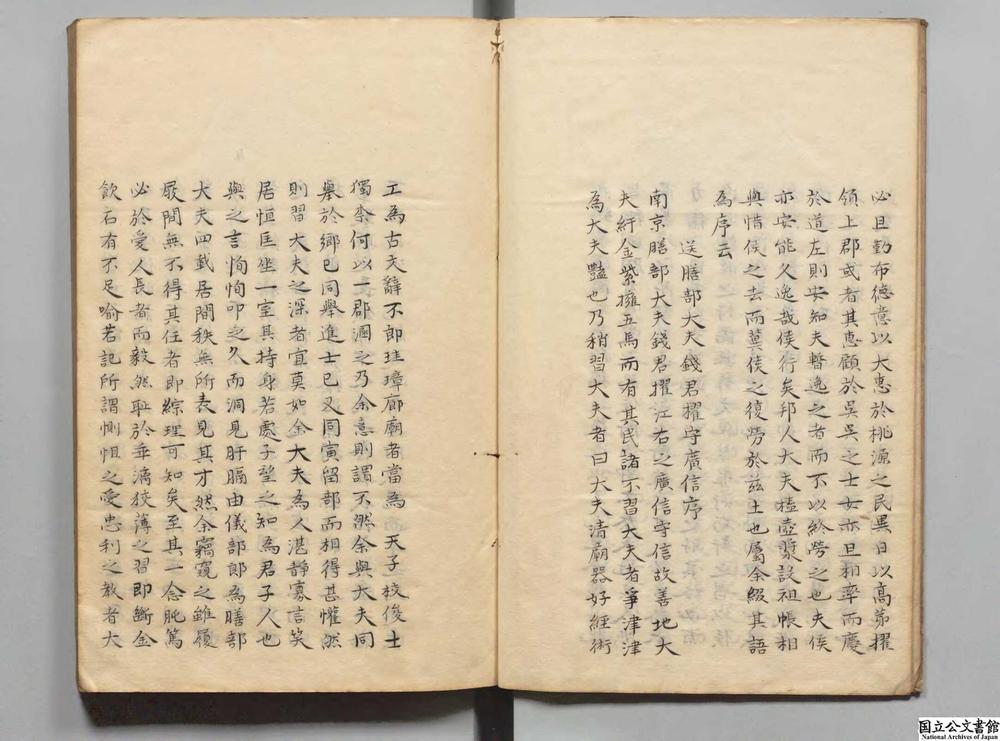 必且勤布德意以大惠於桃源之民異日以高第擢
領上郡或者其惠顧於吳吳之士女亦且相率而慶
於道左則安知夫暫逸之者而不以終勞之也夫侯
亦安能久逸哉侯行矣邦人大夫榼壺漿設祖帳相
與惜侯之去而冀侯之復勞於茲土也屬余綴其語
為序云
送膳部大夫錢君擢守廣信序
南京膳部大夫錢君擢江右之廣信守信故善地大
夫紆金紫擁五馬而有其民諸不習大夫者爭津津
為大夫豔也乃稍習大夫者曰大夫清廟器好經術
工為古文辭不郎珪璋廊廟者當為天子校俊士
獨柰何以一郡溷之乃余意則謂不然余與大夫同
舉於鄉已同舉進士已又同寅留部而相得甚懽然
則習大夫之深者宜莫如余大夫為人湛靜寡言笑
居恒匡坐一室其持身若處子望之知為君子人也
與之言恂恂叩之久而洞見肝膈由儀部郎為膳部
大夫四載居閒秩無所表見其才然余竊窺之雖履
屐間無不得其任者即綜理可知矣至其一念肫篤
必於愛人長者而毅然恥於乖漓狡薄之習即斷金
飲石有不足喻若記所謂惻怛之愛忠利之教者大
国立公文書館
National Archives of Japan